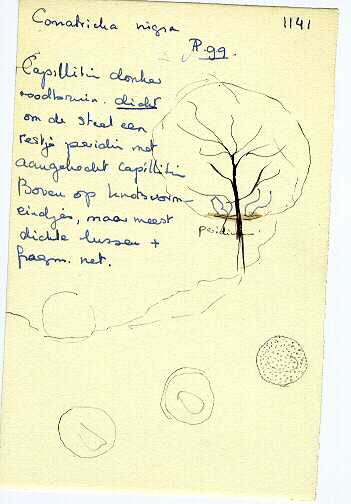 Comatricha nigra
1141
R 99.
Capillitiu donker
roodbruin. dicht
om de steel een
restje peridiu met
aangehecht capillitiu
Boven op knotsvorm
eindjes, maar meest
dichte lussen +
fragm. net.
peridium